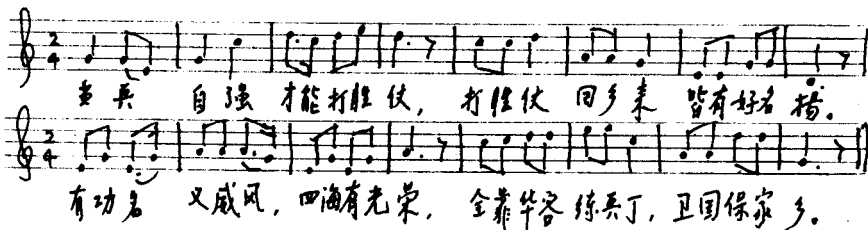 2 4 当兵 自强 才能打胜仗, 打胜仗 回乡来 皆有好名扬。
2 4 有功名 又威风, 四海有光荣, 全靠华容练兵丁, 卫国保家乡。